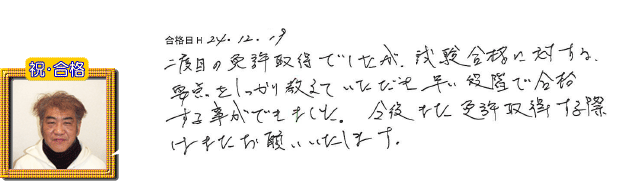 合格日 H 24.12.19
祝・合格
二度目の免許取得でしたが、試験合格に対する、
要点をしっかり教えていただき早い段階で合格
する事ができました。今後また免許取得する際
はまたお願いいたします。